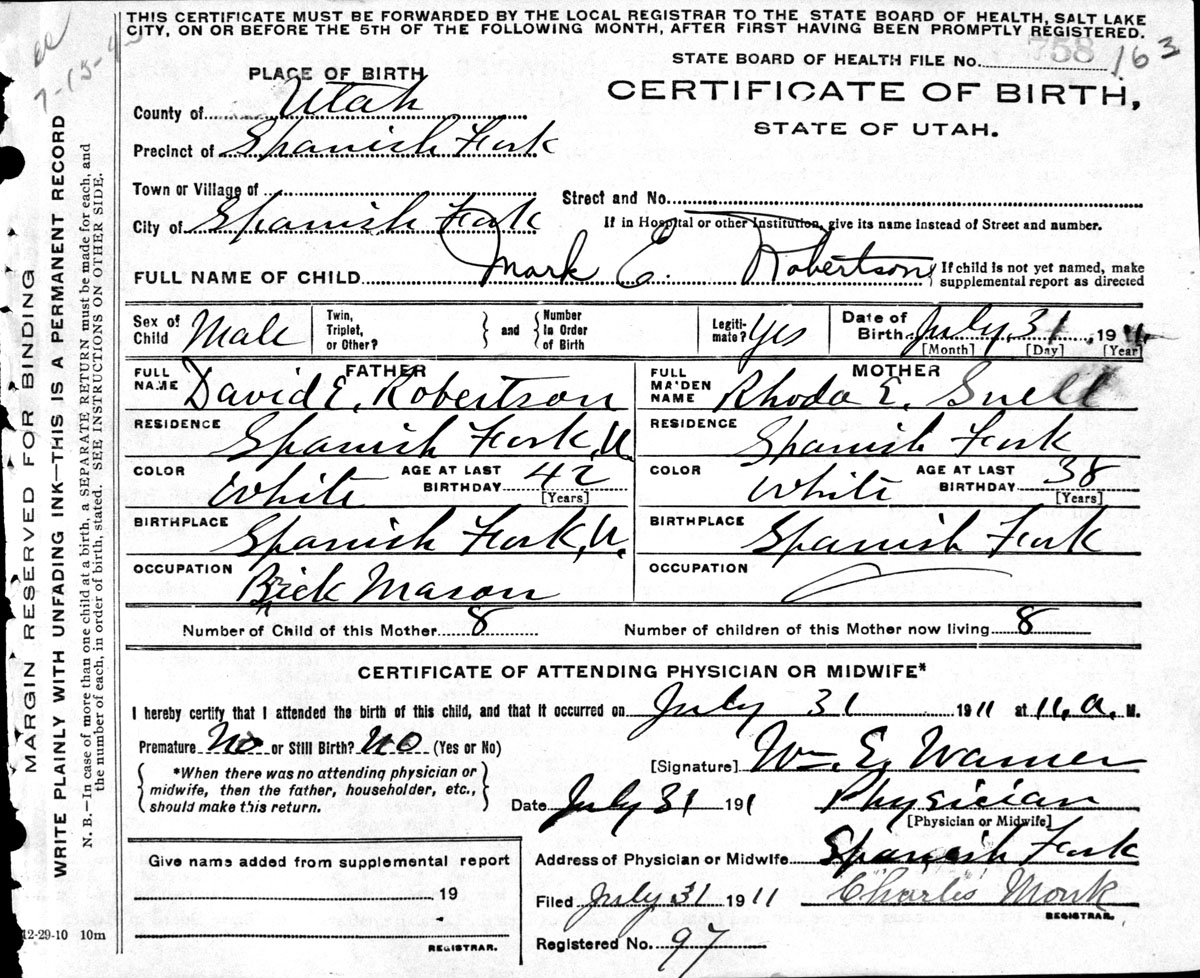 THIS CERTIFICATE MUST BE FORWARDED BY THE LOCAL REGISTRAR TO THE STATE BOARD OF HEALTH, SALT LAKE
CITY, ON OR BEFORE THE 5TH OF THE FOLLOWING MONTH, AFTER FIRST HAVING BEEN PROMPTLY REGISTERED.
7-15-43
STATE BOARD OF HEALTH FILE No. 758 163
PLACE OF BIRTH
CERTIFICATE OF BIRTH,
STATE OF UTAH.
County of Utah
Precinct of Spanish Fork
Town or Village of
Street and No.
City of Spanish Fork
If in Hospital or other Institution, give its name instead of Street and number.
FULL NAME OF CHILD Mark E. Robertson { If child is not yet named, make
supplemental report as directed
Sex of Child Male
Twin, Triplet, or Other? } and { Number In Order of Birth
Legiti-mate? Yes
Date of Birth July 31, 1911
[Month] [Day] [Year]
FATHER
FULL NAME David E. Robertson
RESIDENCE Spanish Fork, U.
COLOR White AGE AT LAST BIRTHDAY 42
[Years]
BIRTHPLACE Spanish Fork, U.
OCCUPATION Brick Mason
MOTHER
FULL MAIDEN NAME Rhoda E. Snell
RESIDENCE Spanish Fork
COLOR White AGE AT LAST BIRTHDAY 38
[Years]
BIRTHPLACE Spanish Fork
OCCUPATION
Number of Child of this Mother 8 Number of children of this Mother now living 8
CERTIFICATE OF ATTENDING PHYSICIAN OR MIDWIFE*
I hereby certify that I attended the birth of this child, and that it occurred on July 31 1911 at 11, a. M.
Premature No or Still Birth? No (Yes or No)
{ *When there was no attending physician or
midwife, then the father, householder, etc.,
should make this return. }
[Signature] Wm. E. Warner
Date July 31 191 Physician
[Physician or Midwife]
Address of Physician or Midwife Spanish Fork
Give name added from supplemental report
19
REGISTRAR.
Filed July 31 1911 Charles Monk
REGISTRAR.
Registered No. 97
12-29-10 10m
MARGIN RESERVED FOR BINDING
WRITE PLAINLY WITH UNFADING INK—THIS IS A PERMANENT RECORD
N. B.—In case of more than one child at a birth, a SEPARATE RETURN must be made for each, and
the number of each, in order of birth, stated. SEE INSTRUCTIONS ON OTHER SIDE.